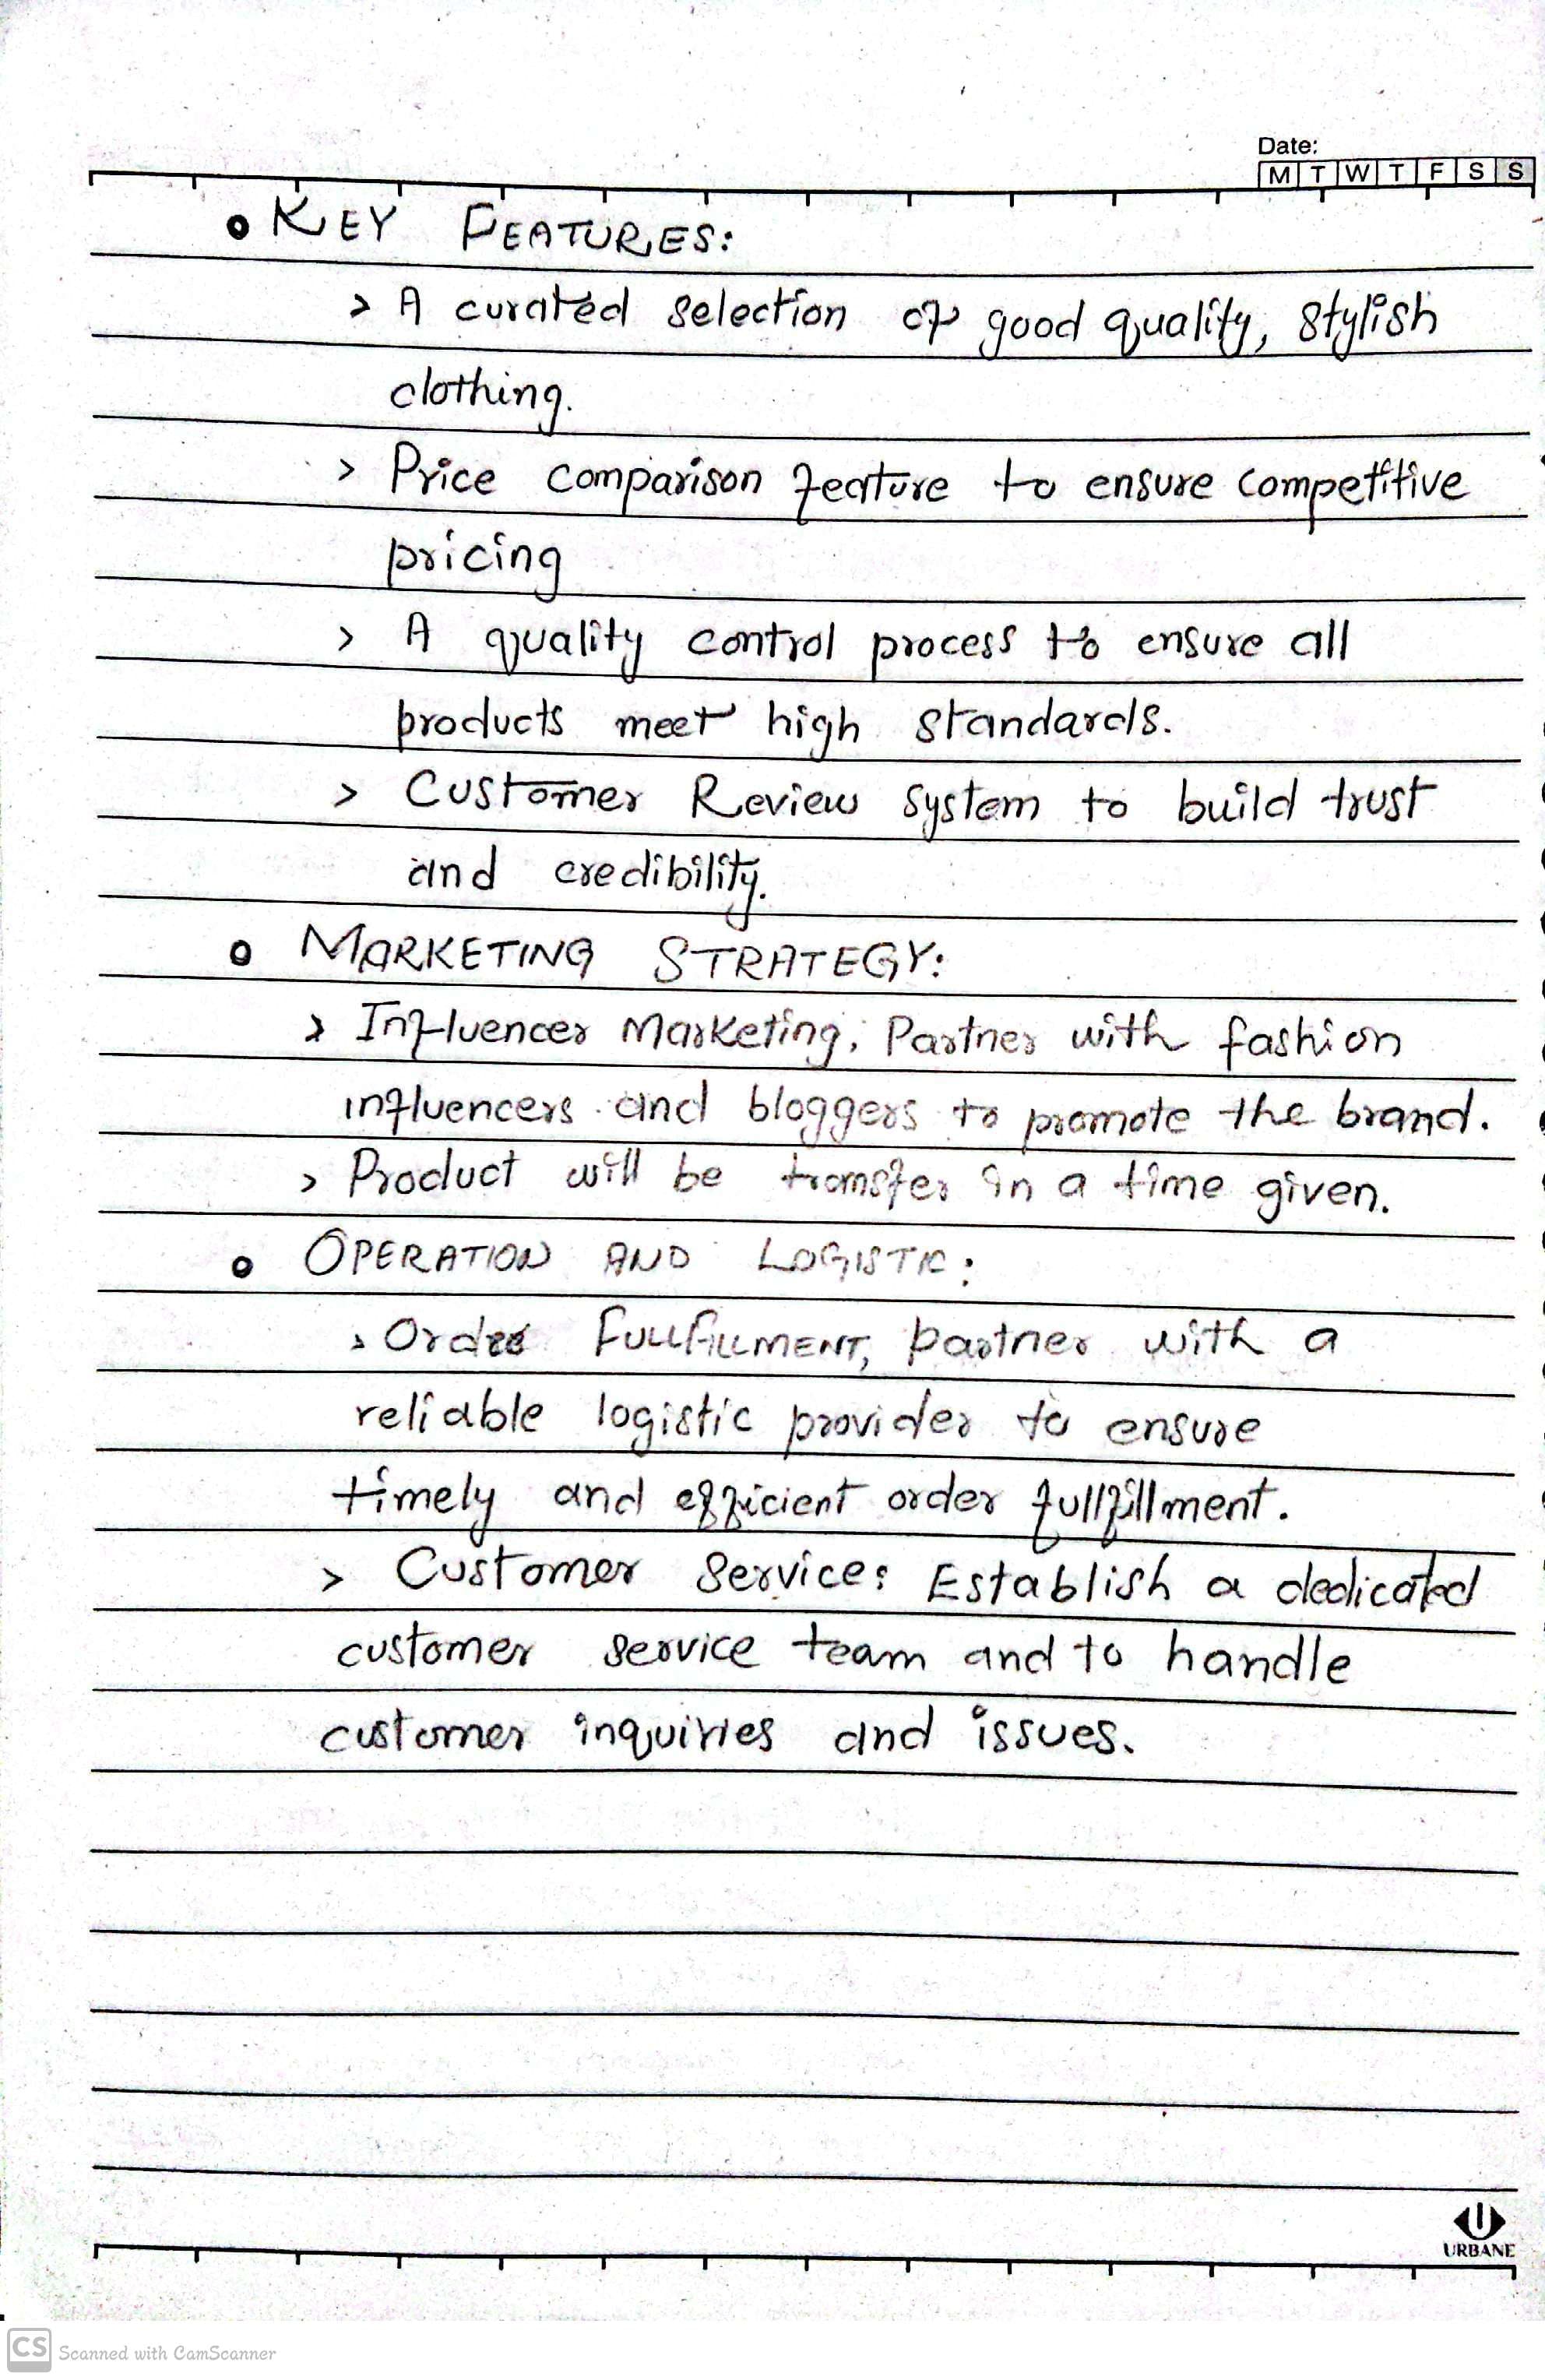 Date:
M T W T F S S
• KEY FEATURES:
> A curated selection of good quality, stylish
clothing.
> Price comparison feature to ensure competitive
pricing
> A quality control process to ensure all
products meet high standards.
> Customer Review system to build trust
and credibility.
• MARKETING STRATEGY:
> Influencer Marketing; Partner with fashion
influencers and bloggers to promote the brand.
> Product will be transfer in a time given.
• OPERATION AND LOGISTIC:
> Order FULLFILLMENT, partner with a
reliable logistic provider to ensure
timely and efficient order fullfillment.
> Customer Service: Establish a dedicated
customer service team and to handle
customer inquiries and issues.
URBANE
CS Scanned with CamScanner